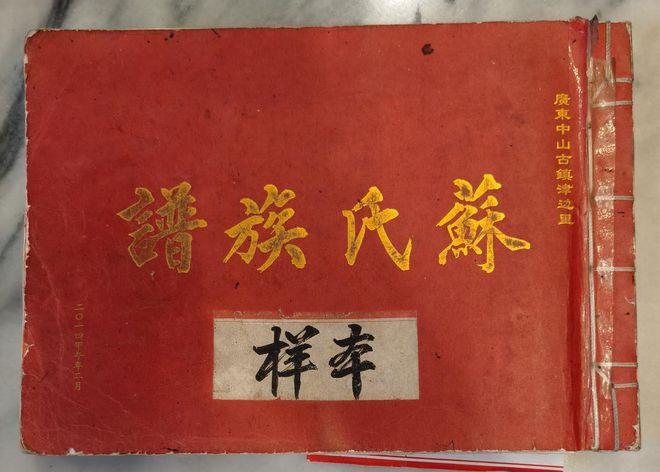 廣東中山古鎮津边里
蘇氏族譜
本样
二〇一四甲午年二月